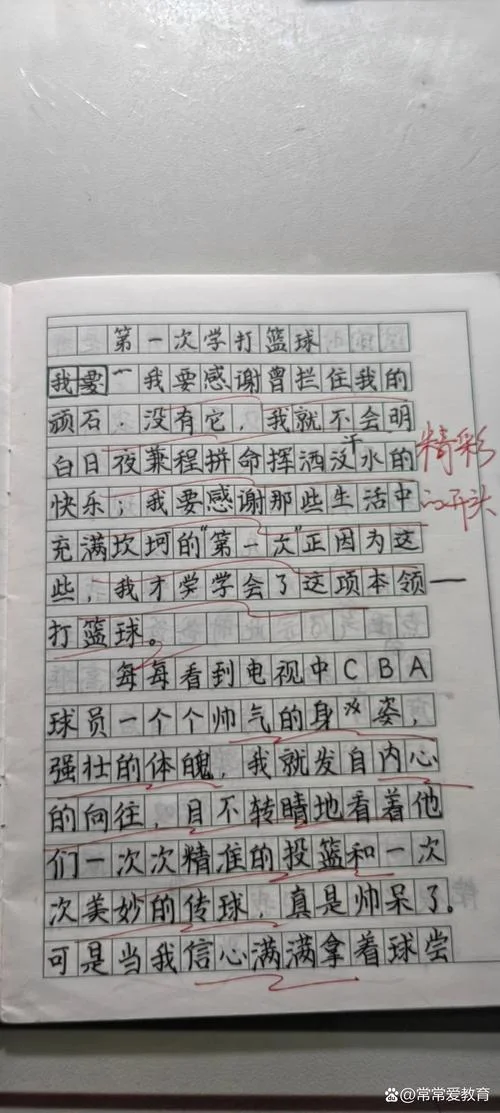 第一次学打篮球
我要 我要感谢曾拦住我的
顽石．没有它，我就不会明
白日夜兼程拼命挥洒汗水的
快乐；我要感谢那些生活中
充满坎坷的“第一次”正因为这
些，我才学学会了这项本领——
打篮球。
每每看到电视中CBA
球员一个个帅气的身姿，
强壮的体魄，我就发自内心
的向往，目不转睛地看着他
们一次次精准的投篮和一次
次美妙的传球，真是帅呆了。
可是当我信心满满拿着球尝
精彩
的开头
@常常爱教育